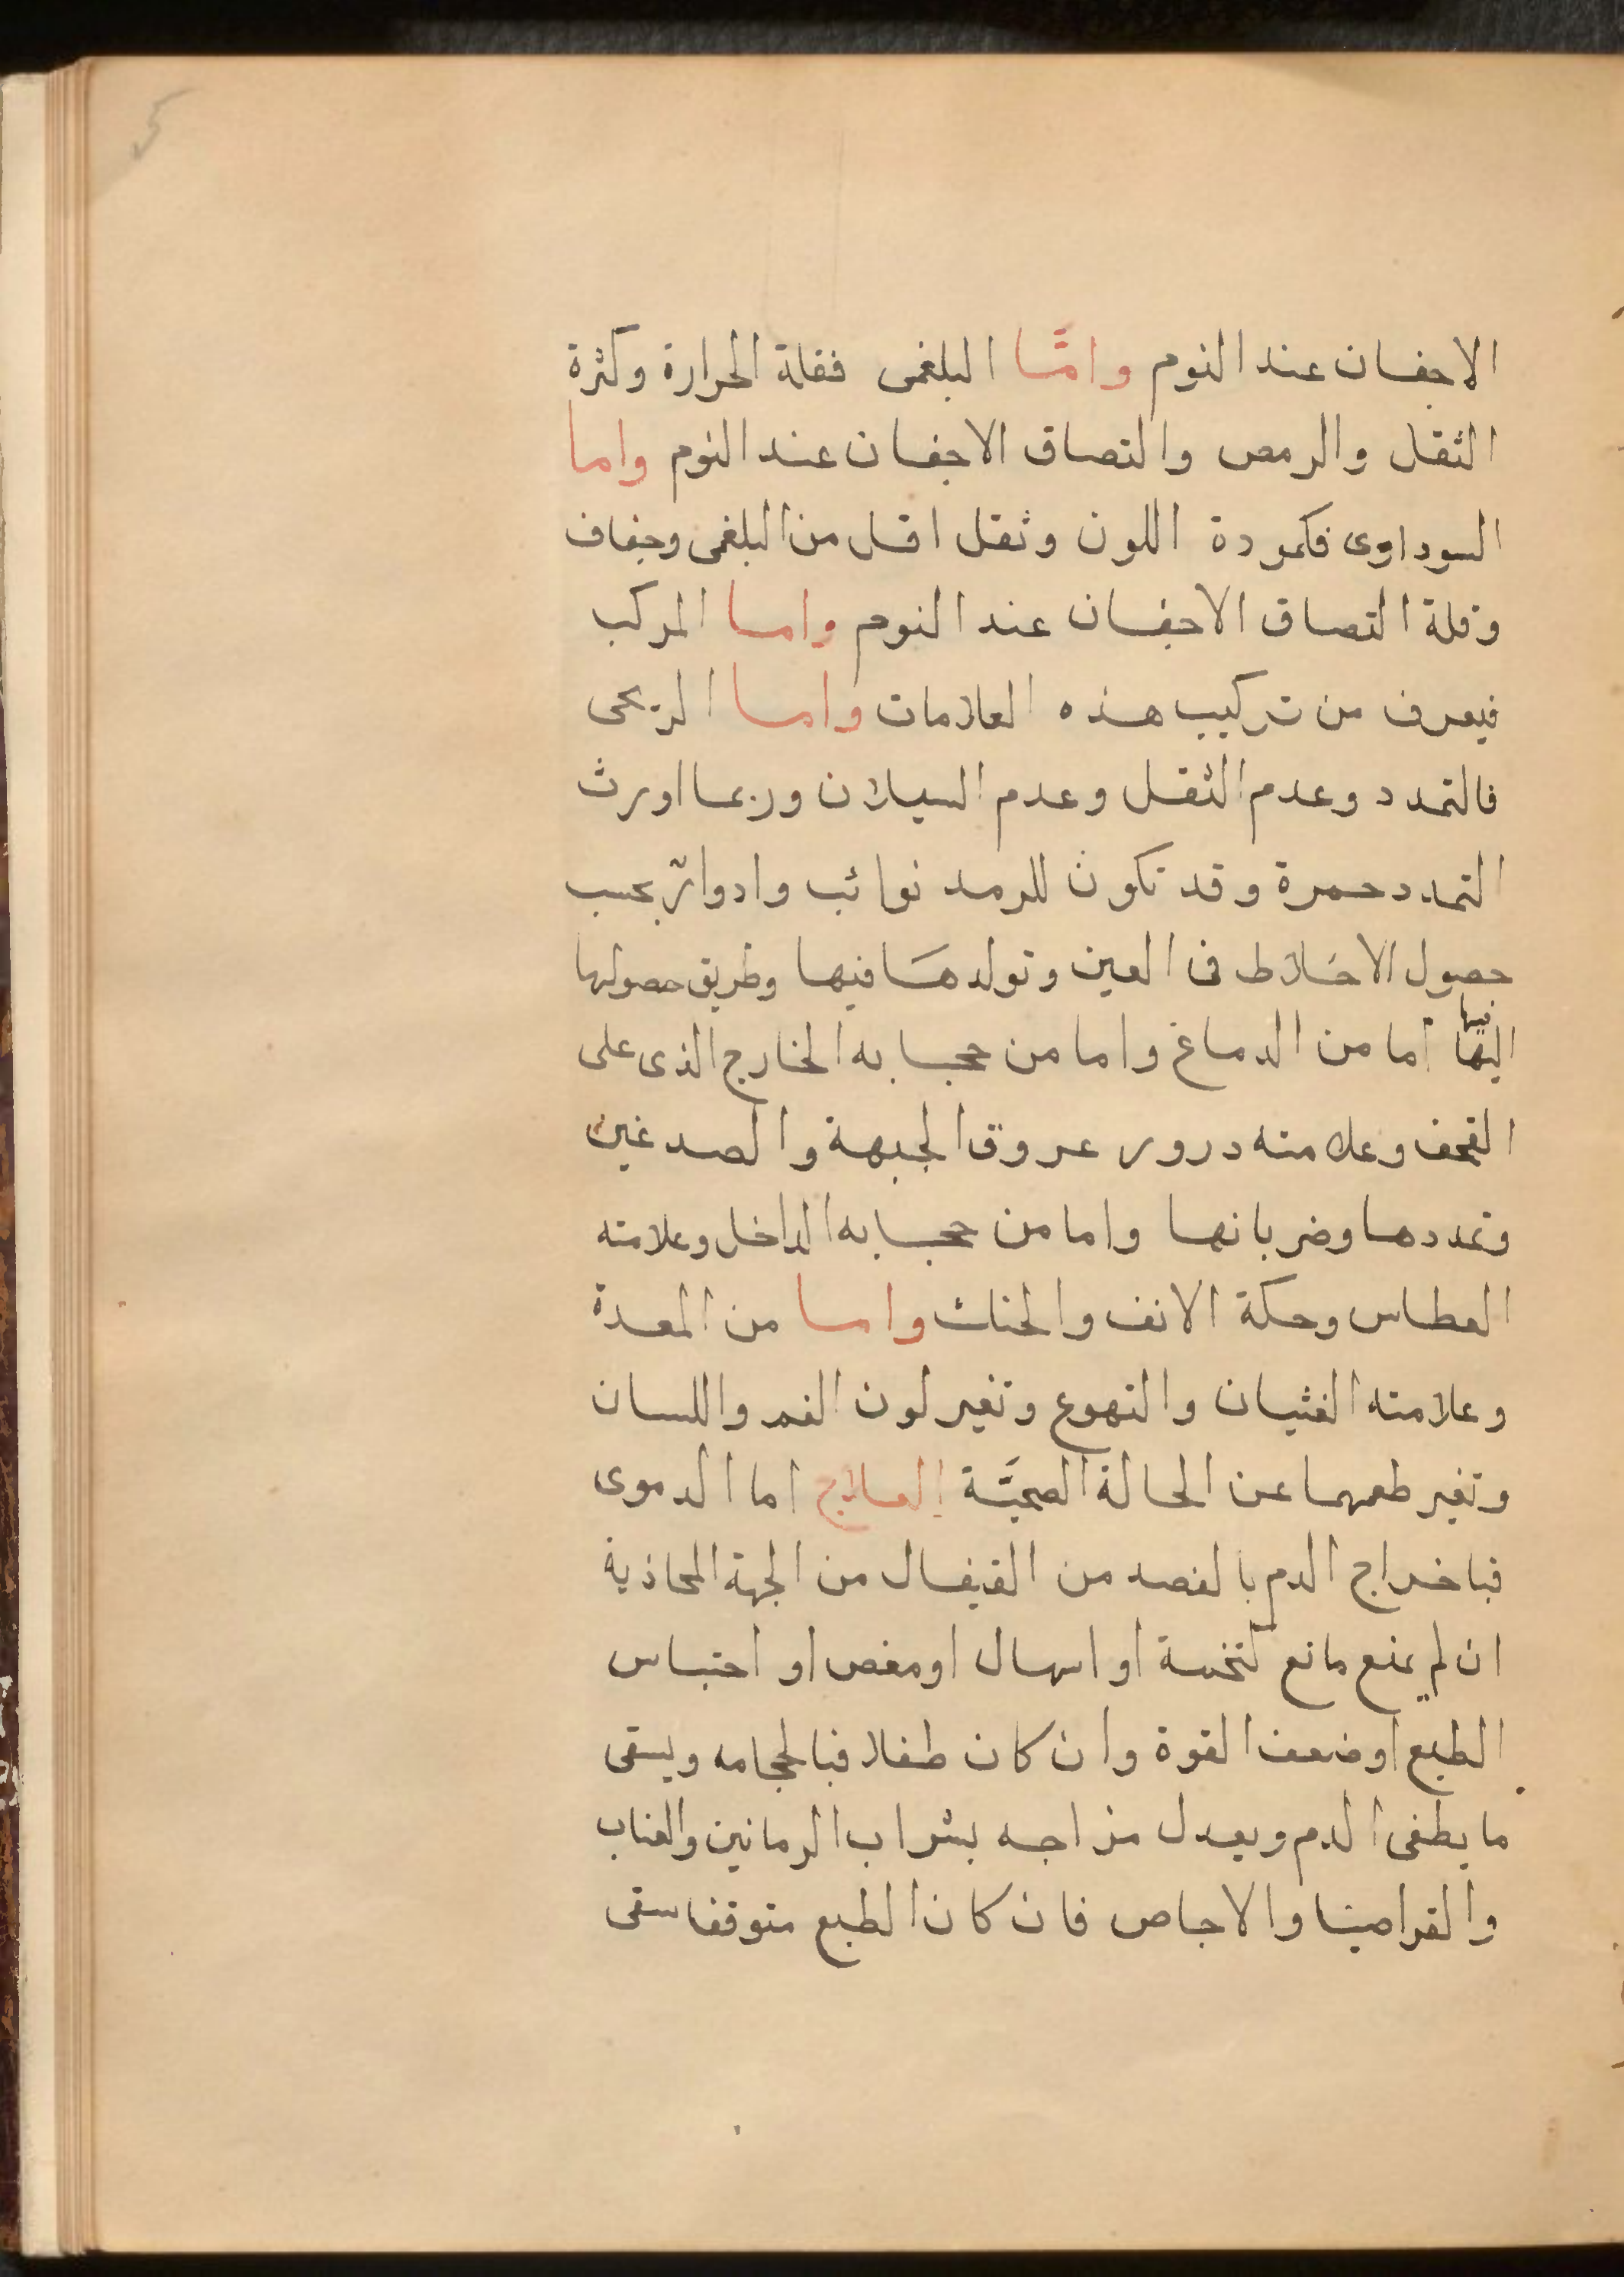 الاجفان عند النوم وامّا البلغمى فقلة الحرارة وكثرة
الثقل والرمص والتصاق الاجفان عند النوم واما
السوداوى فكمودة اللون وثقل اقل من البلغمى وجفاف
وقلة التصاق الاجفان عند النوم واما المركب
فيعرف من تركيب هذه العلامات واما الريحى
فالتمدد وعدم الثقل وعدم السيلان وربما اورث
التمدد حمرة وقد تكون للرمد نوائب وادوار بحسب
حصول الاخلاط فى العين وتولدها فيها وطريق حصولها
فيها
اليها اما من الدماغ واما من حجابه الخارج الذى على
القحف وعلامته درور عروق الجبهة والصدغين
وتمددها وضربانها واما من حجابه الداخل وعلامته
العطاس وحكة الانف والحنك واما من المعدة
وعلامته الغثيان والتهوع وتغير لون الفم واللسان
وتغير طعمهما عن الحالة الصحيّة العلاج اما الدموى
فباخراج الدم بالفصد من القيفال من الجهة المحاذية
ان لم يمنع مانع كتخمة او اسهال او مغص او احتباس
الطبع او ضعف القوة وان كان طفلا فبالحجامه ويسقى
ما يطفى الدم ويعدل مزاجه بشراب الرمانين والعناب
والقراصيا والاجاص فان كان الطبع متوقفا سقى